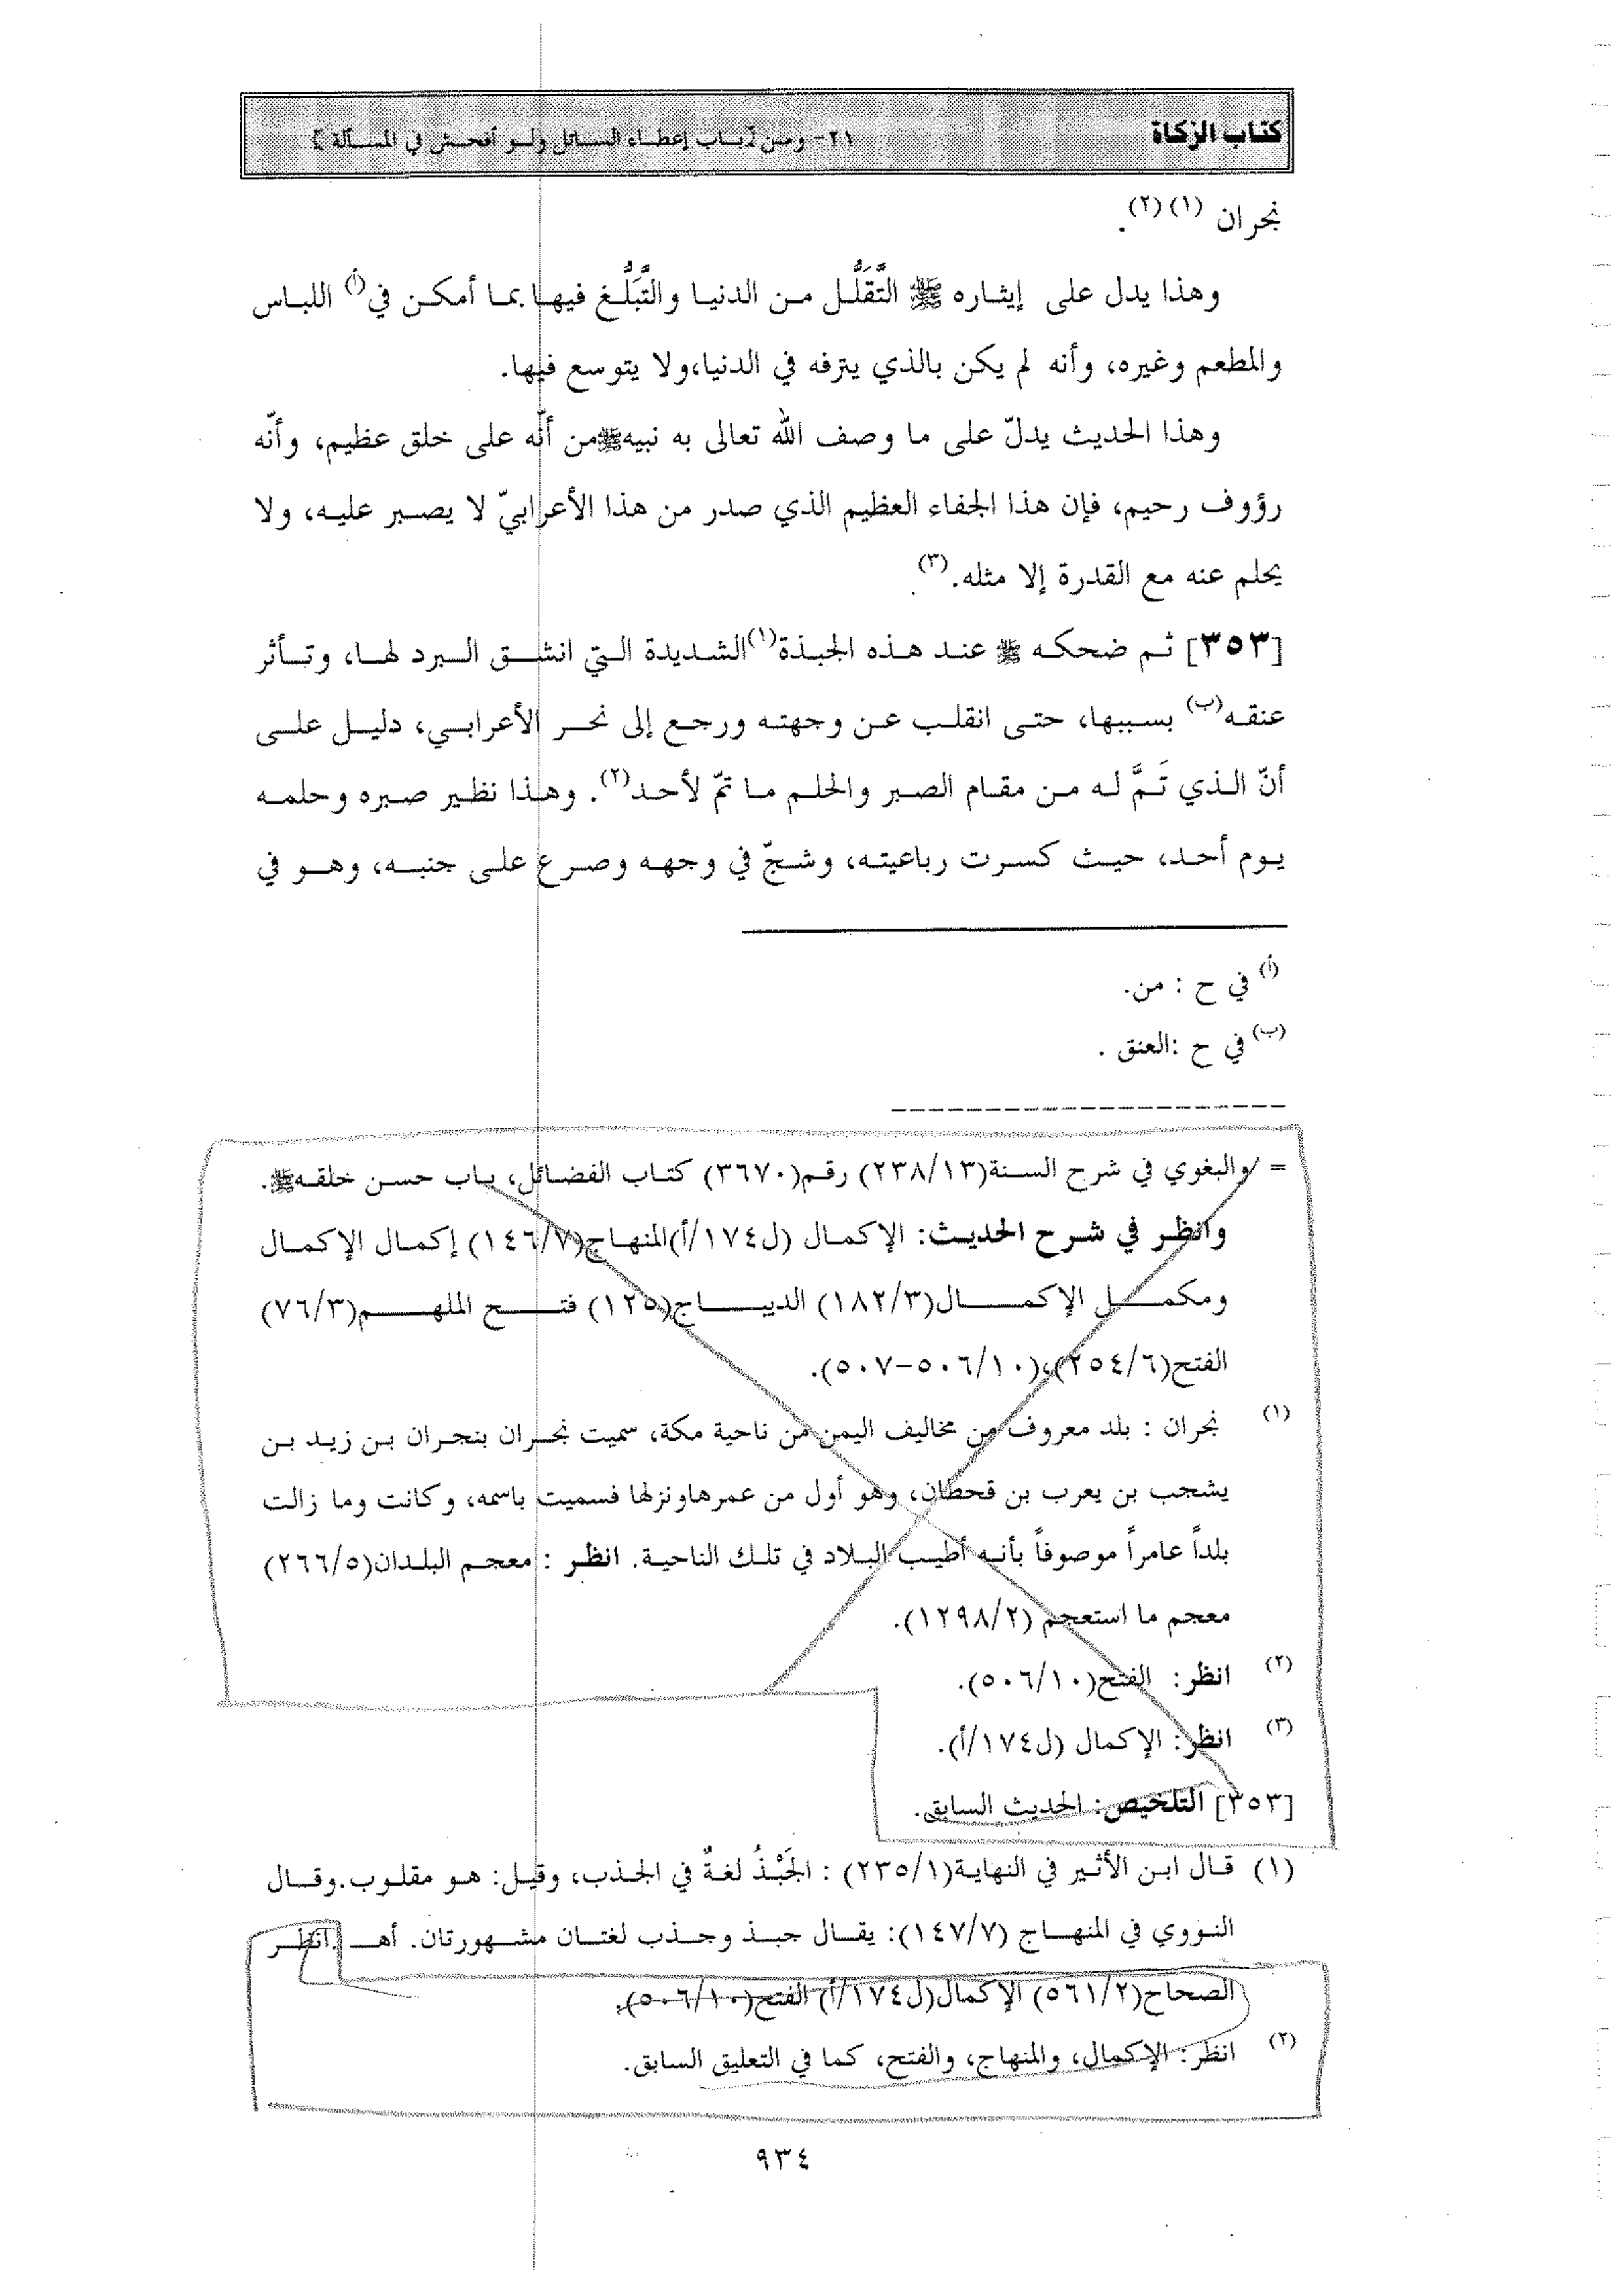 كتاب الزكاة ٢١- ومن [باب إعطاء السائل ولو أفحش في المسألة]
نجران (١) (٢).
وهذا يدل على إيثاره ﷺ التَّقَلُّل من الدنيا والتَّبَلُّغ فيها بما أمكن في(أ) اللباس
والمطعم وغيره، وأنه لم يكن بالذي يترفه في الدنيا،ولا يتوسع فيها.
وهذا الحديث يدلّ على ما وصف الله تعالى به نبيه ﷺ من أنّه على خلق عظيم، وأنّه
رؤوف رحيم، فإن هذا الجفاء العظيم الذي صدر من هذا الأعرابيّ لا يصبر عليه، ولا
يحلم عنه مع القدرة إلا مثله.(٣)
[٣٥٣] ثم ضحكه ﷺ عند هذه الجبذة(١)الشديدة التي انشق البرد لها، وتأثر
عنقه(ب) بسببها، حتى انقلب عن وجهته ورجع إلى نحر الأعرابي، دليل على
أنّ الذي تَمَّ له من مقام الصبر والحلم ما تمّ لأحد(٢). وهذا نظير صبره وحلمه
يوم أحد، حيث كسرت رباعيته، وشجّ في وجهه وصرع على جنبه، وهو في
(أ) في ح : من.
(ب) في ح :العنق .
= والبغوي في شرح السنة(٢٣٨/١٣) رقم(٣٦٧٠) كتاب الفضائل، باب حسن خلقه ﷺ.
وانظر في شرح الحديث: الإكمال (ل١٧٤/أ)المنهاج(١٤٦/٧) إكمال الإكمال
ومكمل الإكمال(١٨٢/٣) الديباج(١٢٥) فتح الملهم(٧٦/٣)
الفتح(٢٥٤/٦)،(٥٠٦/١٠-٥٠٧).
(١) نجران : بلد معروف من مخاليف اليمن من ناحية مكة، سميت نجران بنجران بن زيد بن
يشجب بن يعرب بن قحطان، وهو أول من عمرهاونزلها فسميت باسمه، وكانت وما زالت
بلداً عامراً موصوفاً بأنه أطيب البلاد في تلك الناحية. انظر : معجم البلدان(٢٦٦/٥)
معجم ما استعجم (١٢٩٨/٢).
(٢) انظر: الفتح(٥٠٦/١٠).
(٣) انظر: الإكمال (ل١٧٤/أ).
[٣٥٣] التلخيص: الحديث السابق.
(١) قال ابن الأثير في النهاية(٢٣٥/١) : الجَبْذُ لغةٌ في الجذب، وقيل: هو مقلوب.وقال
النووي في المنهاج (١٤٧/٧): يقال جبذ وجذب لغتان مشهورتان. أهـ .انظر
الصحاح(٥٦١/٢) الإكمال(ل١٧٤/أ) الفتح(٥٠٦/١٠).
(٢) انظر: الإكمال، والمنهاج، والفتح، كما في التعليق السابق.
٩٣٤